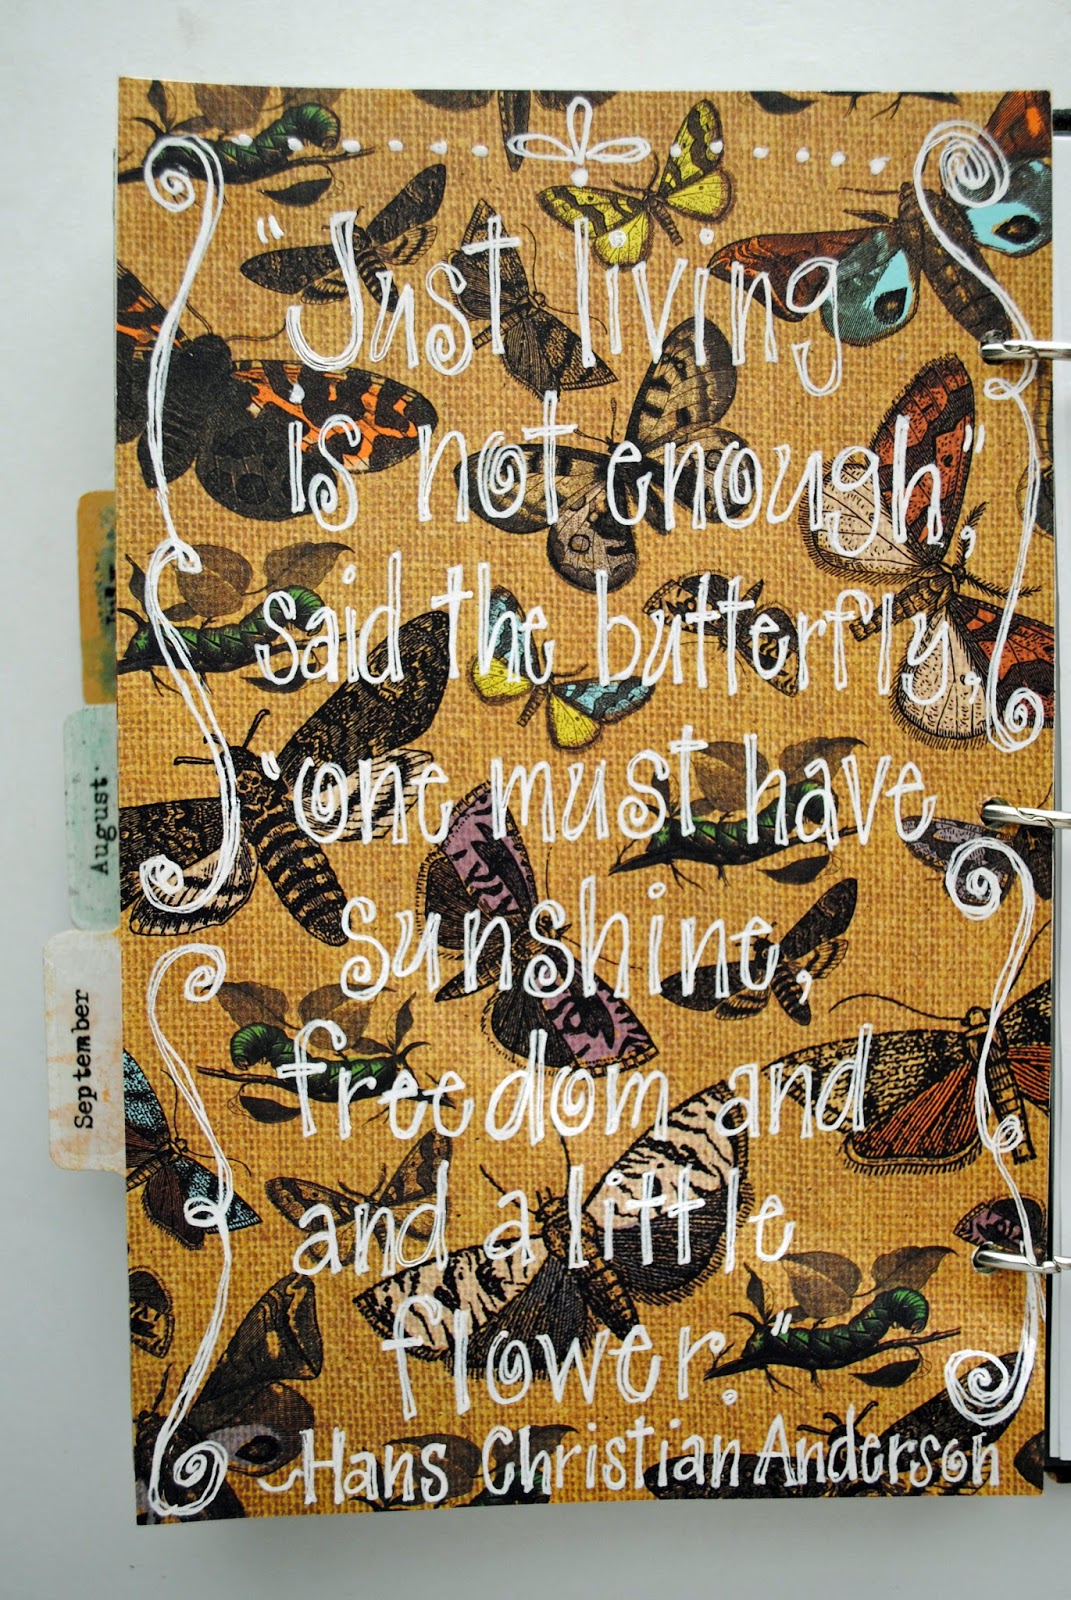 "Just living
is not enough",
said the butterfly,
"one must have
sunshine,
freedom and
and a little
flower."
Hans Christian Anderson
August
September